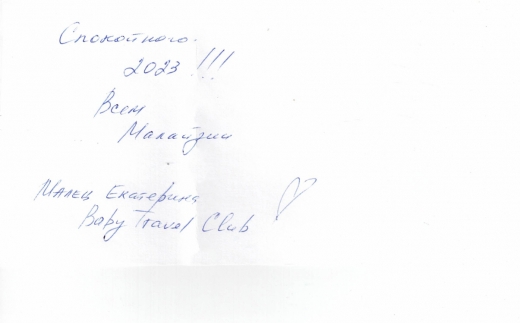 Спокойного
2023 !!!
Всем
Малайзии
Малец Екатерина
Baby Travel Club